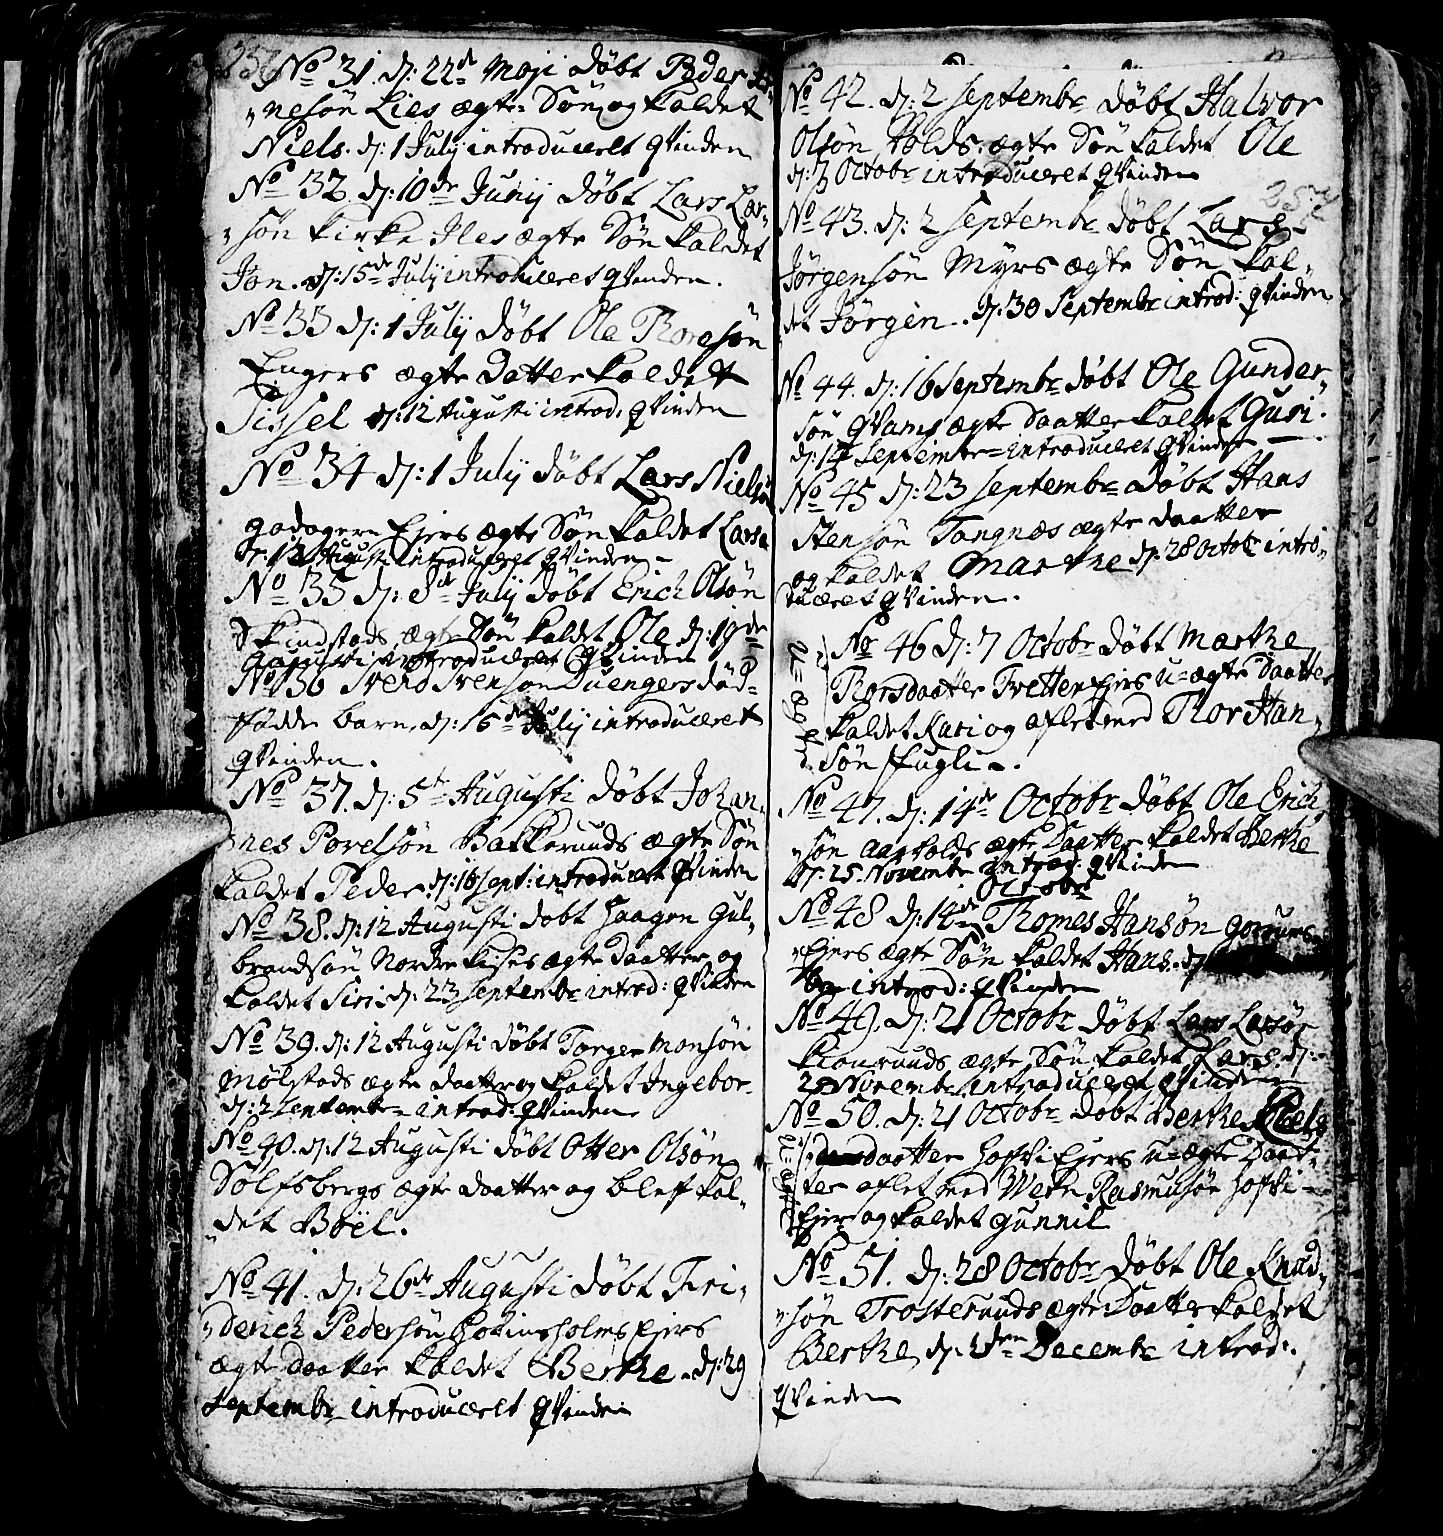 257 No 31. d: 22de Maji döbt Peder
nesön Lies ægte Sön og kaldet
Niels. d: 1 Julij introduceret qvinden
No 32 d: 10de Junij döbt Lars Lar-
sön Kirke Iles ægte Sön kaldet
Jon. d: 15de Julij introduceret qvinden.
No 33 d: 1 Julij döbt Ole Thoresön
Engers ægte Datter kaldet
Sissel d: 12 Augusti introd: qvinden
No 34 d: 1 Julij döbt Lars Nielsön
Ejers ægte Sön kaldet Lars
12 Augusti introduceret qvinden
No 35 d: 8de Julij döbt Erich Olsön
Skindstads ægte Sön kaldet Ole d: 19de
Augusti introduceret qvinden
No 36 Svend Svensön Duengers död-
födde barn, d: 15de Julij introduceret
qvinden.
No 37. d: 5te Augusti döbt Johan-
nes Povelsön Bakkerunds ægte Sön
kaldet Peder. d: 16 Sept: introduceret qvinden
No 38. d: 12 Augusti döbt Haagen Gul-
brandsön Nordre Kises ægte Daatter og
kaldet Siri. d: 23 Septembr introd: qvinden
No 39. d: 12 Augusti döbt Torger Monsön
Mölstads ægte daatter og kaldet Ingebor
d: 2 Septembr introd: qvinden
No 40. d: 12 Augusti döbt Otter Olsön
Solfsbergs ægte daatter og bleff kal-
det Böel.
No 41. d: 26de Augusti döbt Fri-
derich Pedersön Ejers
ægte daatter kaldet Berthe. d: 29
Septembr introduceret qvinden
No 42. d: 2 Septembr döbt Halvor
Olsön Holds ægte Sön kaldet Ole
d: 3 Octobr introduceret qvinden
257
No 43. d: 2 Septembr döbt Lars
Jörgensön Myrs ægte Sön kal-
det Jörgen. d: 30 Septembr introd: qvinden
No 44. d: 16 Septembr döbt Ole Gunder-
sön Qvams ægte Daatter kaldet Guri.
d: 14 Septembr introduceret qvinden
No 45 d: 23 Septembr döbt Hans
Stensön Tangnæs ægte daatter
og kaldet Marthe d: 28 Octobr intro-
duceret qvinden.
No 46 d: 7 Octobr döbt Marthe
Thorsdaatter Tvetten Ejers u-ægte Daatter
kaldet Kari og aflet med Thor Han-
sön Fugli.
u-ægte
No 47. d: 14de Octobr döbt Ole Erich-
sön Aasholds ægte Daatter kaldet Berthe
d: 25 Novembr introd: qvinden
Octobr
No 48 d: 14de Thomes Hansön
Ejers ægte Sön kaldet Hans. d:
introd: qvinden
No 49. d: 21 Octobr döbt Lars Larsön
Kionruuds ægte Sön kaldet Lars. d:
Novembr introduceret qvinden
No 50. d: 21 Octobr döbt Berthe
daatter Hoffvi Ejers u-ægte Daat-
ter aflet med Rasmusön Hoffvi-
Ejer og kaldet Gunnil
u-ægte
No 51. d: 28 Octobr döbt Ole Knud-
sön Trosteruuds ægte Daatter kaldet
Berthe, d: Decembr introd:
qvinden